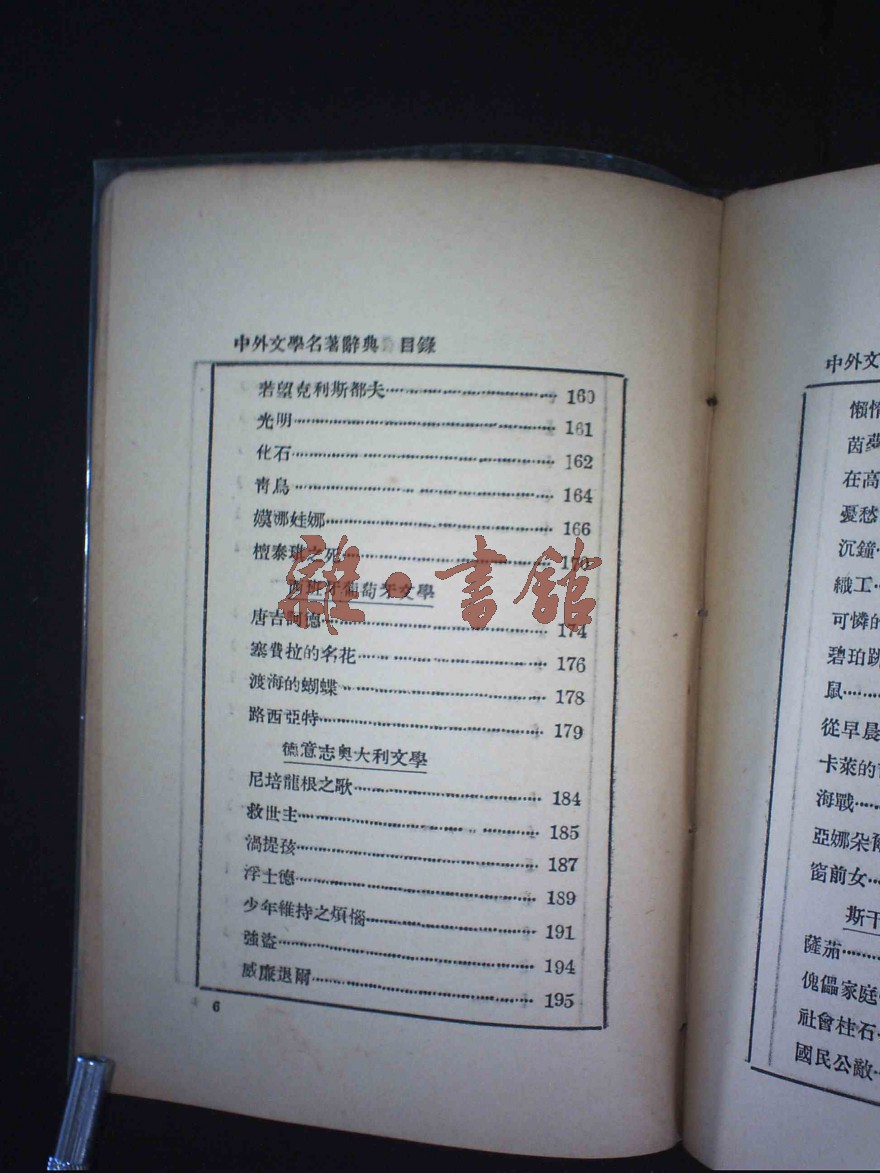 中外文學名著辭典 目錄
若望克利斯都夫 160
光明 161
化石 162
青鳥 164
嫫娜娃娜 166
檀泰琪之死 170
西班牙葡萄牙文學
唐吉訶德 174
塞費拉的名花 176
渡海的蝴蝶 178
路西亞特 179
德意志奧大利文學
尼培龍根之歌 184
救世主 185
渦提孩 187
浮士德 189
少年維持之煩惱 191
強盜 194
威廉退爾 195
6
雜·書館
中外文
懶惰
茵夢
在高
憂愁
沉鐘
織工
可憐的
碧珀跳
鼠
從早晨
卡萊的
海戰
亞娜朵爾
窗前女
斯干
薩茄
傀儡家庭
社會柱石
國民公敵